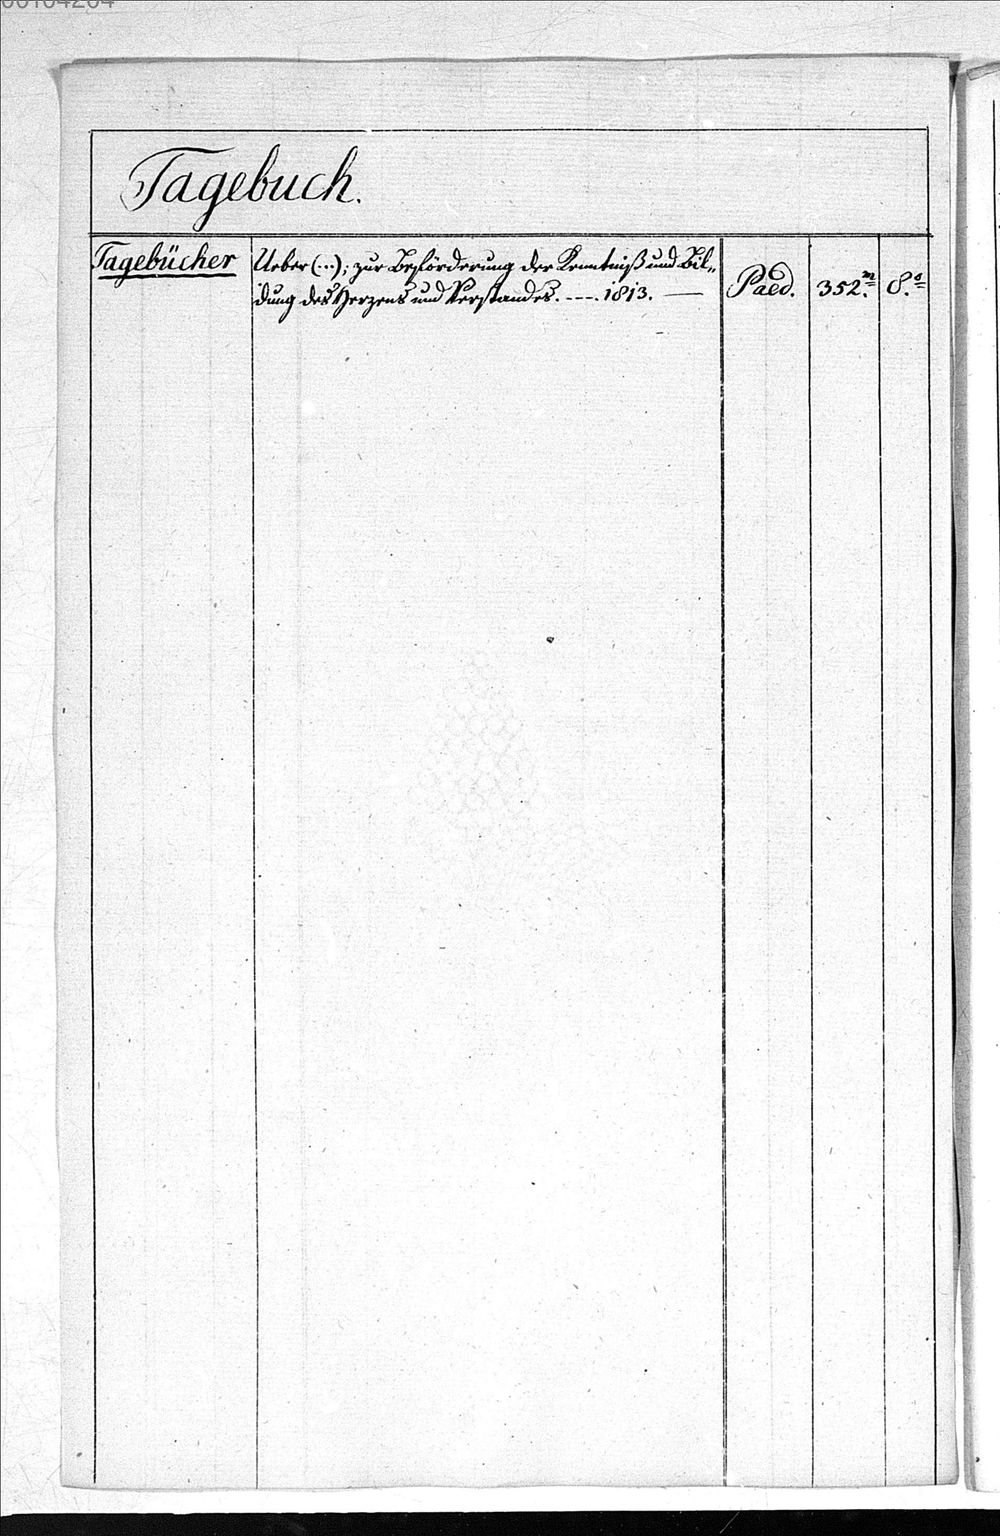 Tagebuch.
Tagebücher Ueber (...); zur Beförderung der Kenntniß und Bil- Paed. 352.m 8.o
dung des Herzens und Verstandes. ----. 1813. —